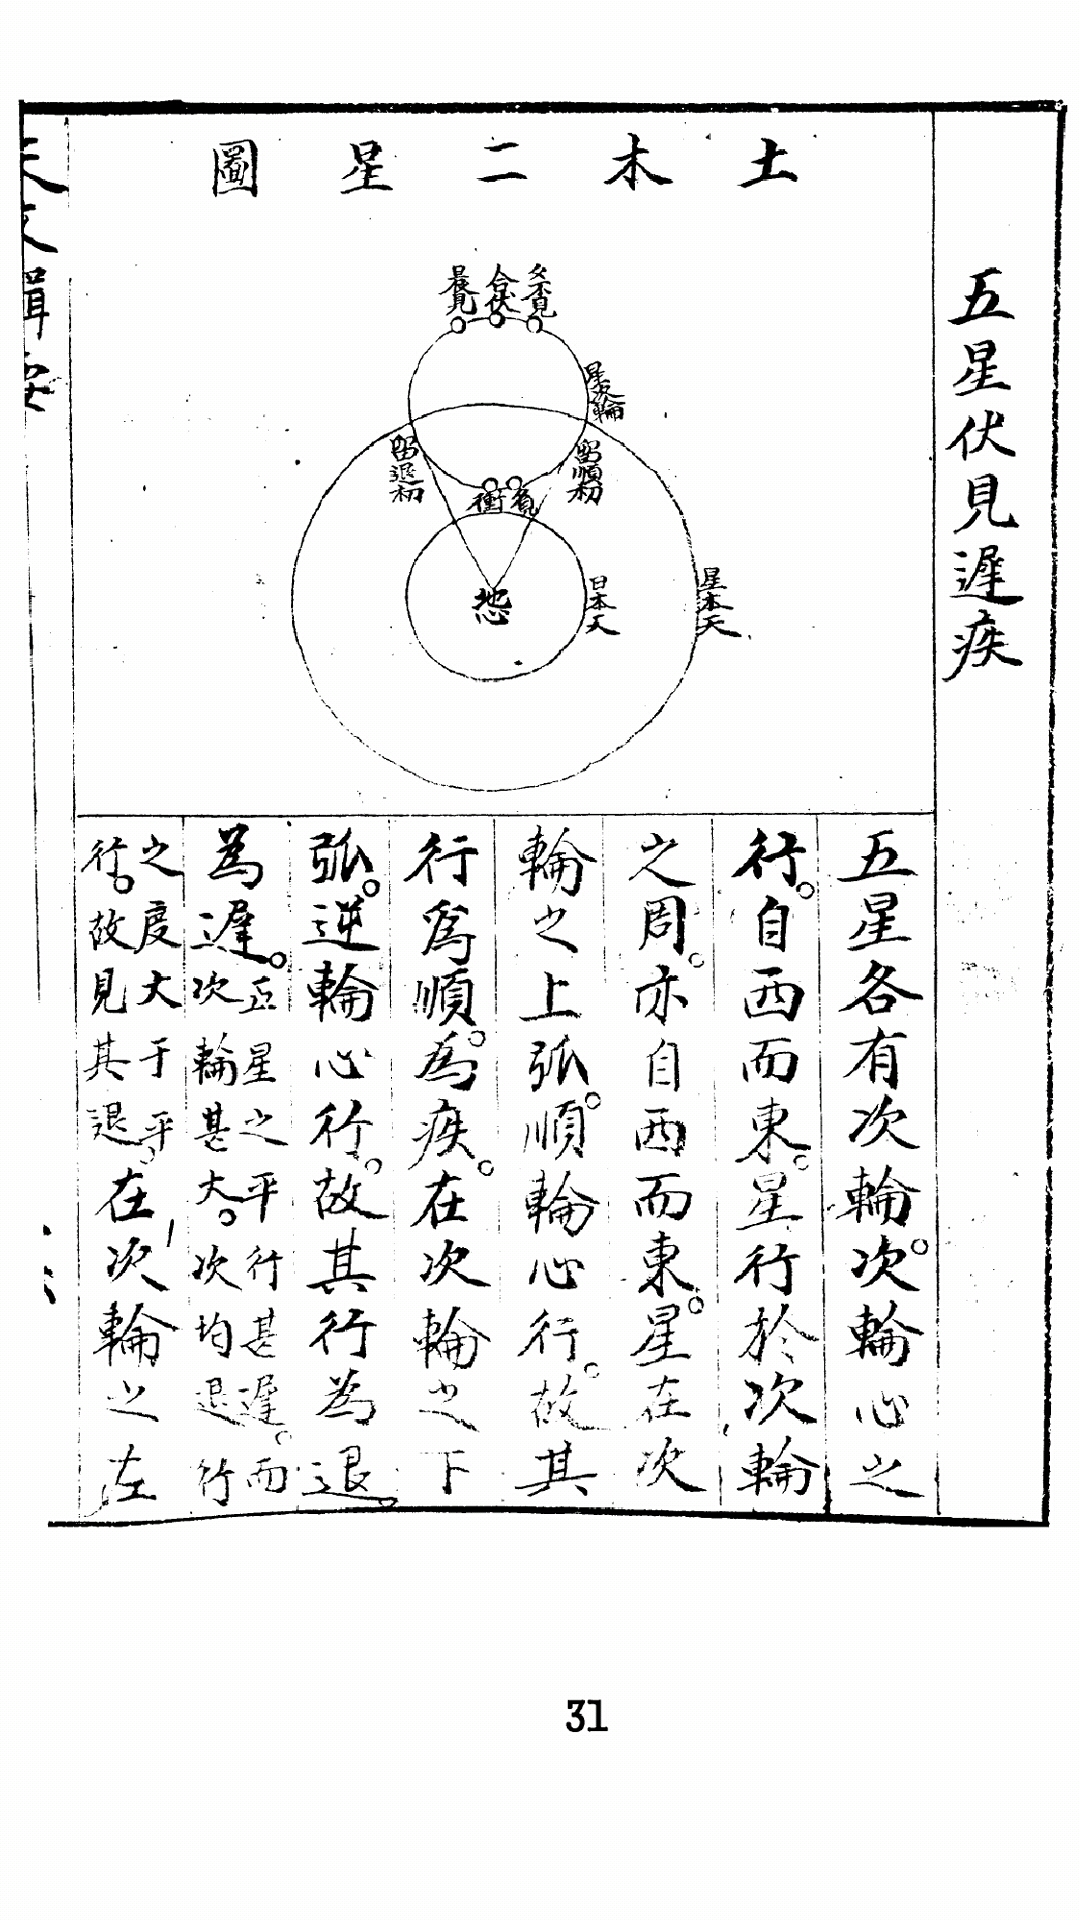 五星伏見遲疾
土木二星圖
晨見
合伏
夕不見
星次輪
留退初
留順初
衝
地心
日本天
星本天
五星各有次輪。次輪心之
行。自西而東。星行於次輪
之周。亦自西而東。星在次
輪之上弧。順輪心行。故其
行爲順。為疾。在次輪之下
弧。逆輪心行。故其行為退。
為遲。五星之平行甚遲。而
次輪甚大。次均退行
之度大于平
行。故見其退。在次輪之左
31